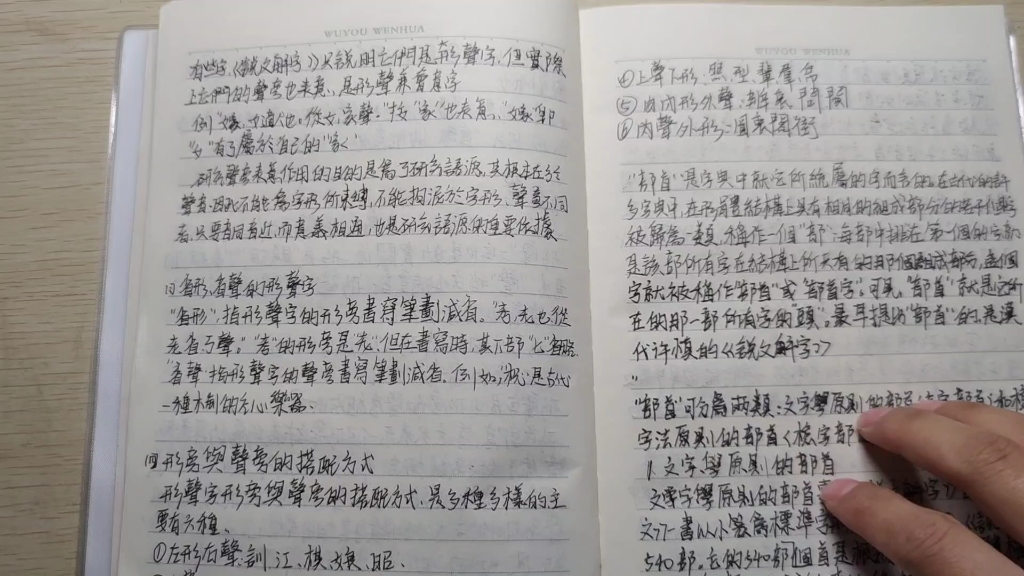 WUYOU WENHUA
有些字,《說文解字》只說明它們是形聲字,但實際
上它們的聲旁也表意,是形聲兼會意字
例"嫁,女適人也。從女,家聲。"按"家"也表意,
"有了屬於自己的"家"
研究聲旁表意作用的目的是為了研究語源,其根本在於
聲音,因此不能為字形所束縛,不能拘泥於字形,聲音不同
者,只要音同音近,而意義相通,也是研究語源的重要依據
省形、省聲的形聲字
"省形"指形聲字的形旁書寫筆劃減省。"考,老也從
老省丂聲。""考"的形旁是"老",但在書寫時,其下部"匕"省略.
"省聲"指形聲字的聲旁書寫筆劃減省。例如,"祝"是古代
一種木制的打擊樂器.
四形旁與聲旁的搭配方式
形聲字形旁與聲旁的搭配方式,是多種多樣的主
要有六種.
①左形右聲:訓、江、棋、娘、昭.
WUYOU WENHUA
④上聲下形:
⑤內形外聲:辮、哀、問、聞
⑥內聲外形:固、裹、閣、街
"部首"是字典中就它所統屬的字而言的,在古代的許
多字典中,在形體結構上具有相同的組成部分的若干個字
被歸為一類,稱作一個"部",每部中排在第一個的字都
是該部所有字在結構上所共有的那個組成部分,這個
字就被稱作"部首"或"部首字"可見,"部首"就是它所
在的那一部所有字的"頭"。最早提出"部首"的是漢
代許慎的《說文解字》
"
"部首"可分為兩類:文字學原則的部首
字法原則的部首(檢字部
1.文字學原則的部首
文字學原則的部首
文》一書以小篆為標準字
540部,它的540部個首是